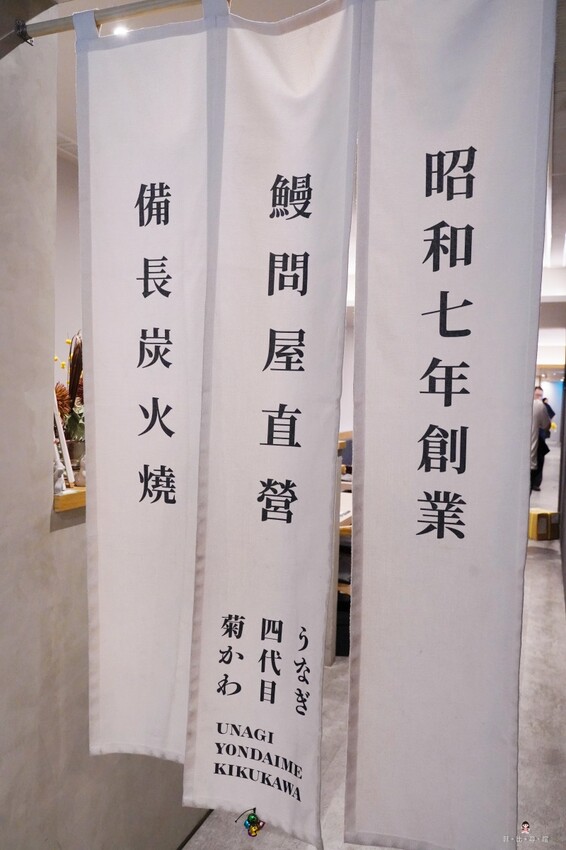 昭和七年創業
鰻問屋直營
備長炭火燒
うなぎ
四代目
菊かわ
UNAGI
YONDAIME
KIKUKAWA